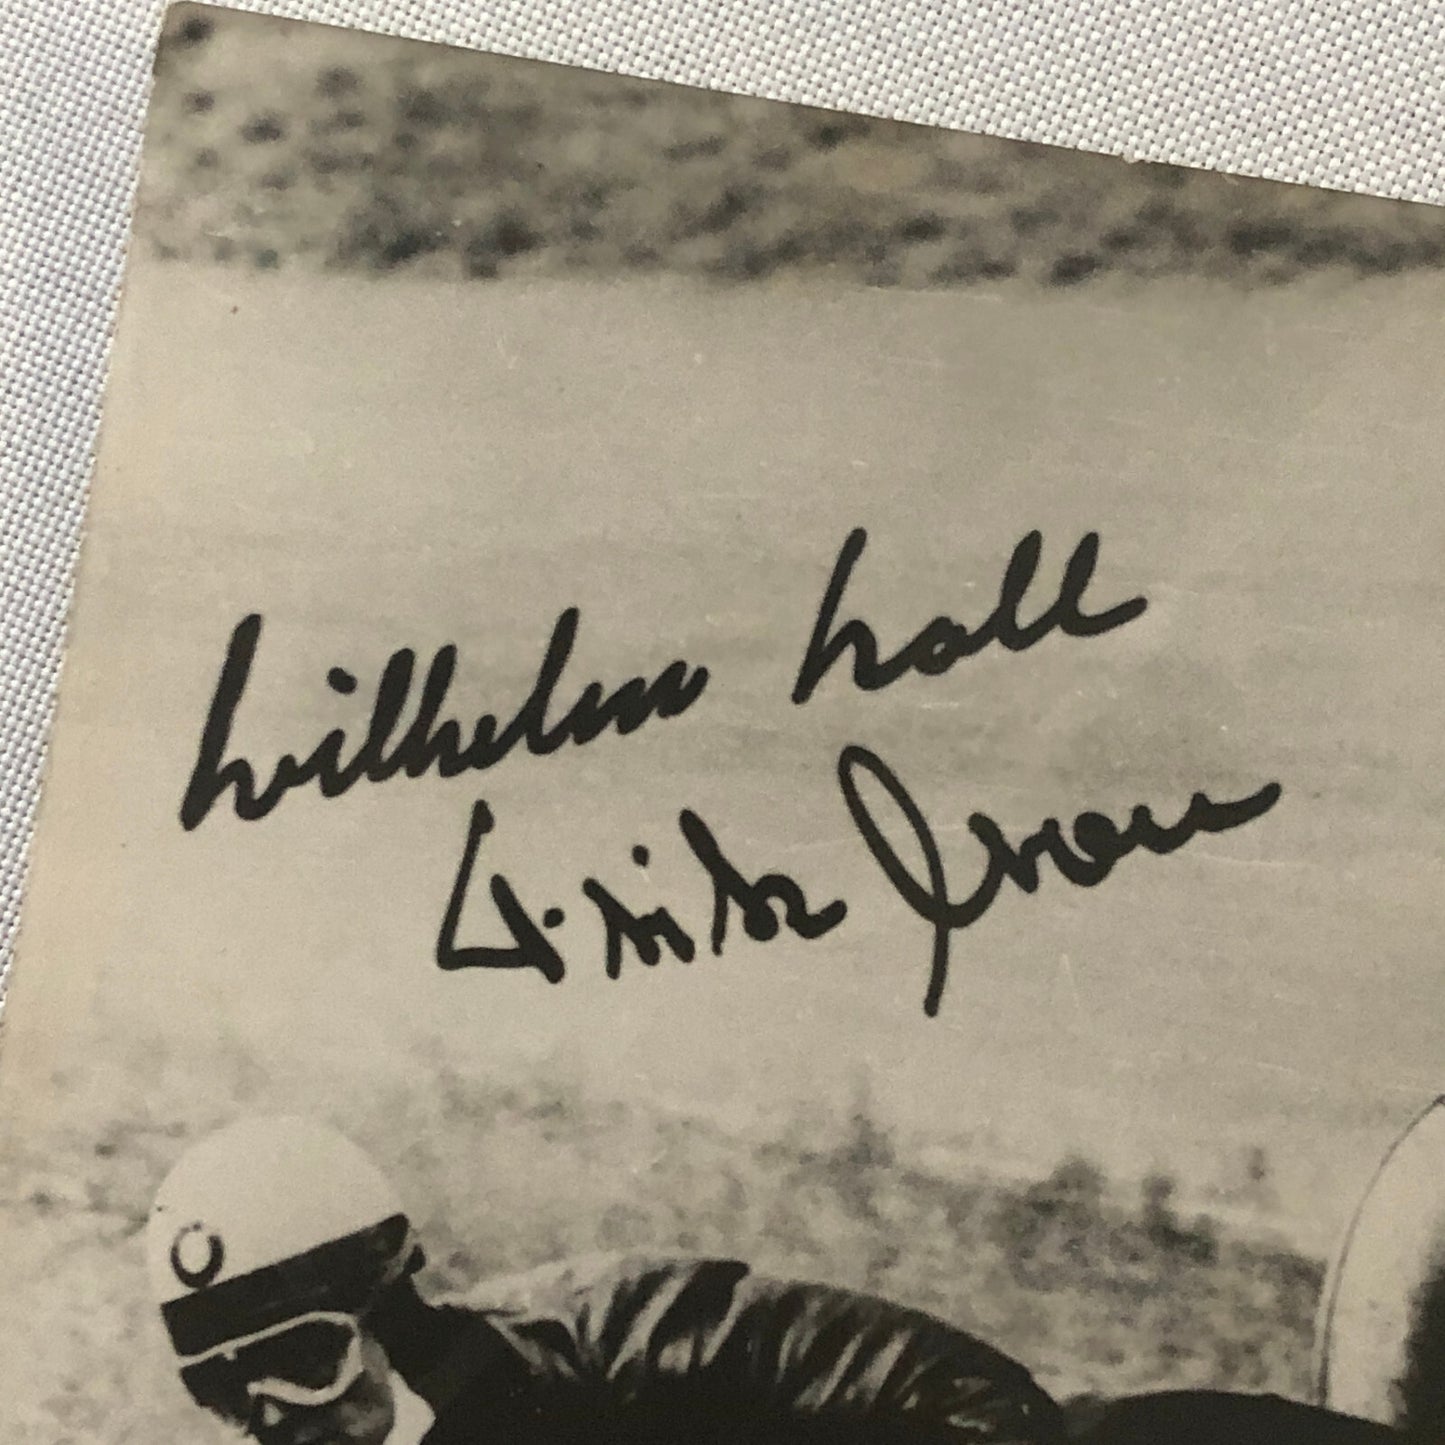 Wilhelm Noll
Fritz Cron